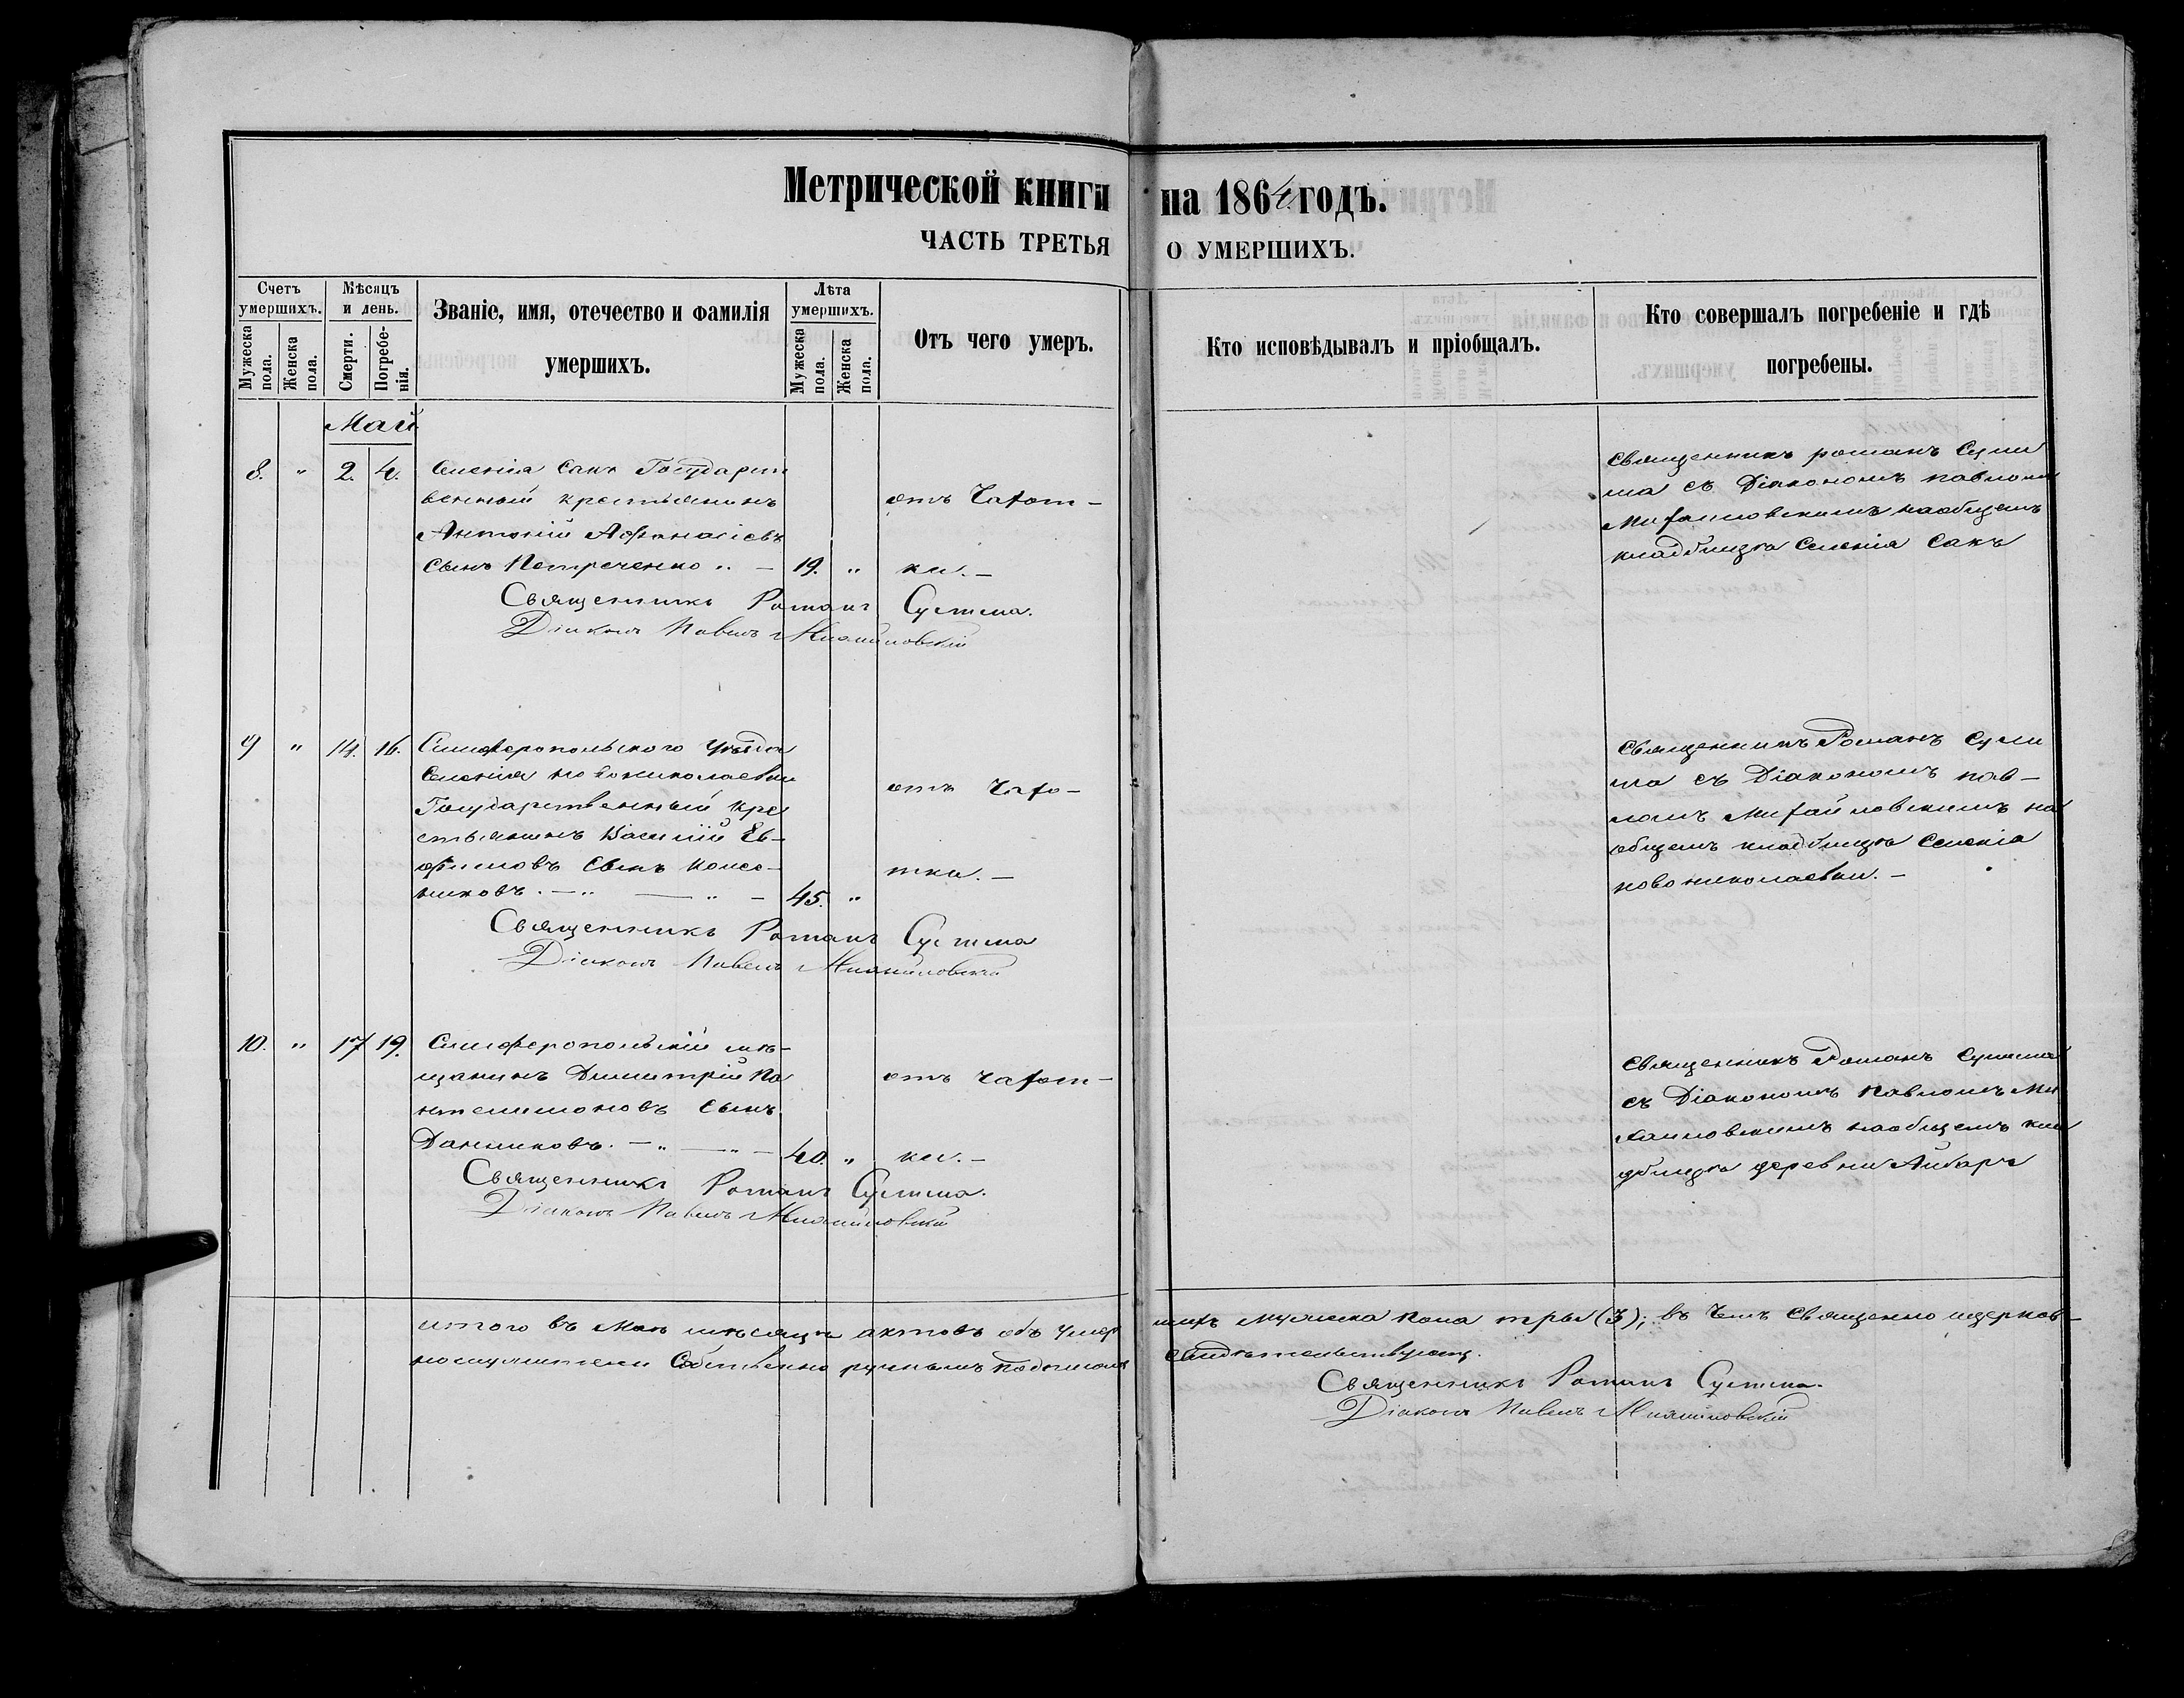 Метрической книги на 1864 годъ.
ЧАСТЬ ТРЕТЬЯ О УМЕРШИХЪ.
Счетъ умершихъ.
Мужеска пола.
Женска пола.
Мѣсяцъ и день.
Смерти.
Погребенія.
Званіе, имя, отечество и фамилія
умершихъ.
Лѣта умершихъ.
Мужеска пола.
Женска пола.
Отъ чего умеръ.
Кто исповѣдывалъ и пріобщалъ.
Кто совершалъ погребеніе и гдѣ
погребены.
Май
8. " 2. 4. Селенія Сакъ Государст
венный крестьянинъ
Антоній Афонасіевъ
сынъ Петреченко " — 19. "
отъ Чахот-
ки. —
Священникъ Романъ
Діаконъ Павелъ Михайловскій
Священникъ романъ
съ Діакономъ павломъ
Михайловскимъ на общемъ
кладбищѣ Селенія Сакъ
9 " 14. 16. Симферопольского Уѣзда
Селенія новониколаевки
Государственный кре
стьянинъ Василій Ев-
фимовъ сынъ
45. "
отъ Чахо-
тки. —
Священникъ Романъ
Діаконъ Павелъ Михайловскій
Священникъ Романъ
съ Діакономъ пав-
ломъ Михайловскимъ на
общемъ кладбищѣ Селенія
новониколаевки. —
10. " 17 19. Симферопольскій мѣ-
щанинъ Димитрій Па
нтелимоновъ сынъ
Даниловъ. — " — " — 40. "
отъ чахот-
ки. —
Священникъ Романъ
Діаконъ Павелъ Михайловскій
Священникъ Романъ
съ Діакономъ Павломъ Ми
хайловскимъ на общемъ кла
дбищѣ деревни Айбаръ
итого въ Маѣ мѣсяцѣ актовъ объ Умер шихъ мужеска пола три (3); въ Чемъ Священно церков-
нослужители Собственно ручнымъ подписомъ свидѣтельствуютъ.
Священникъ Романъ
Діаконъ Павелъ Михайловскій